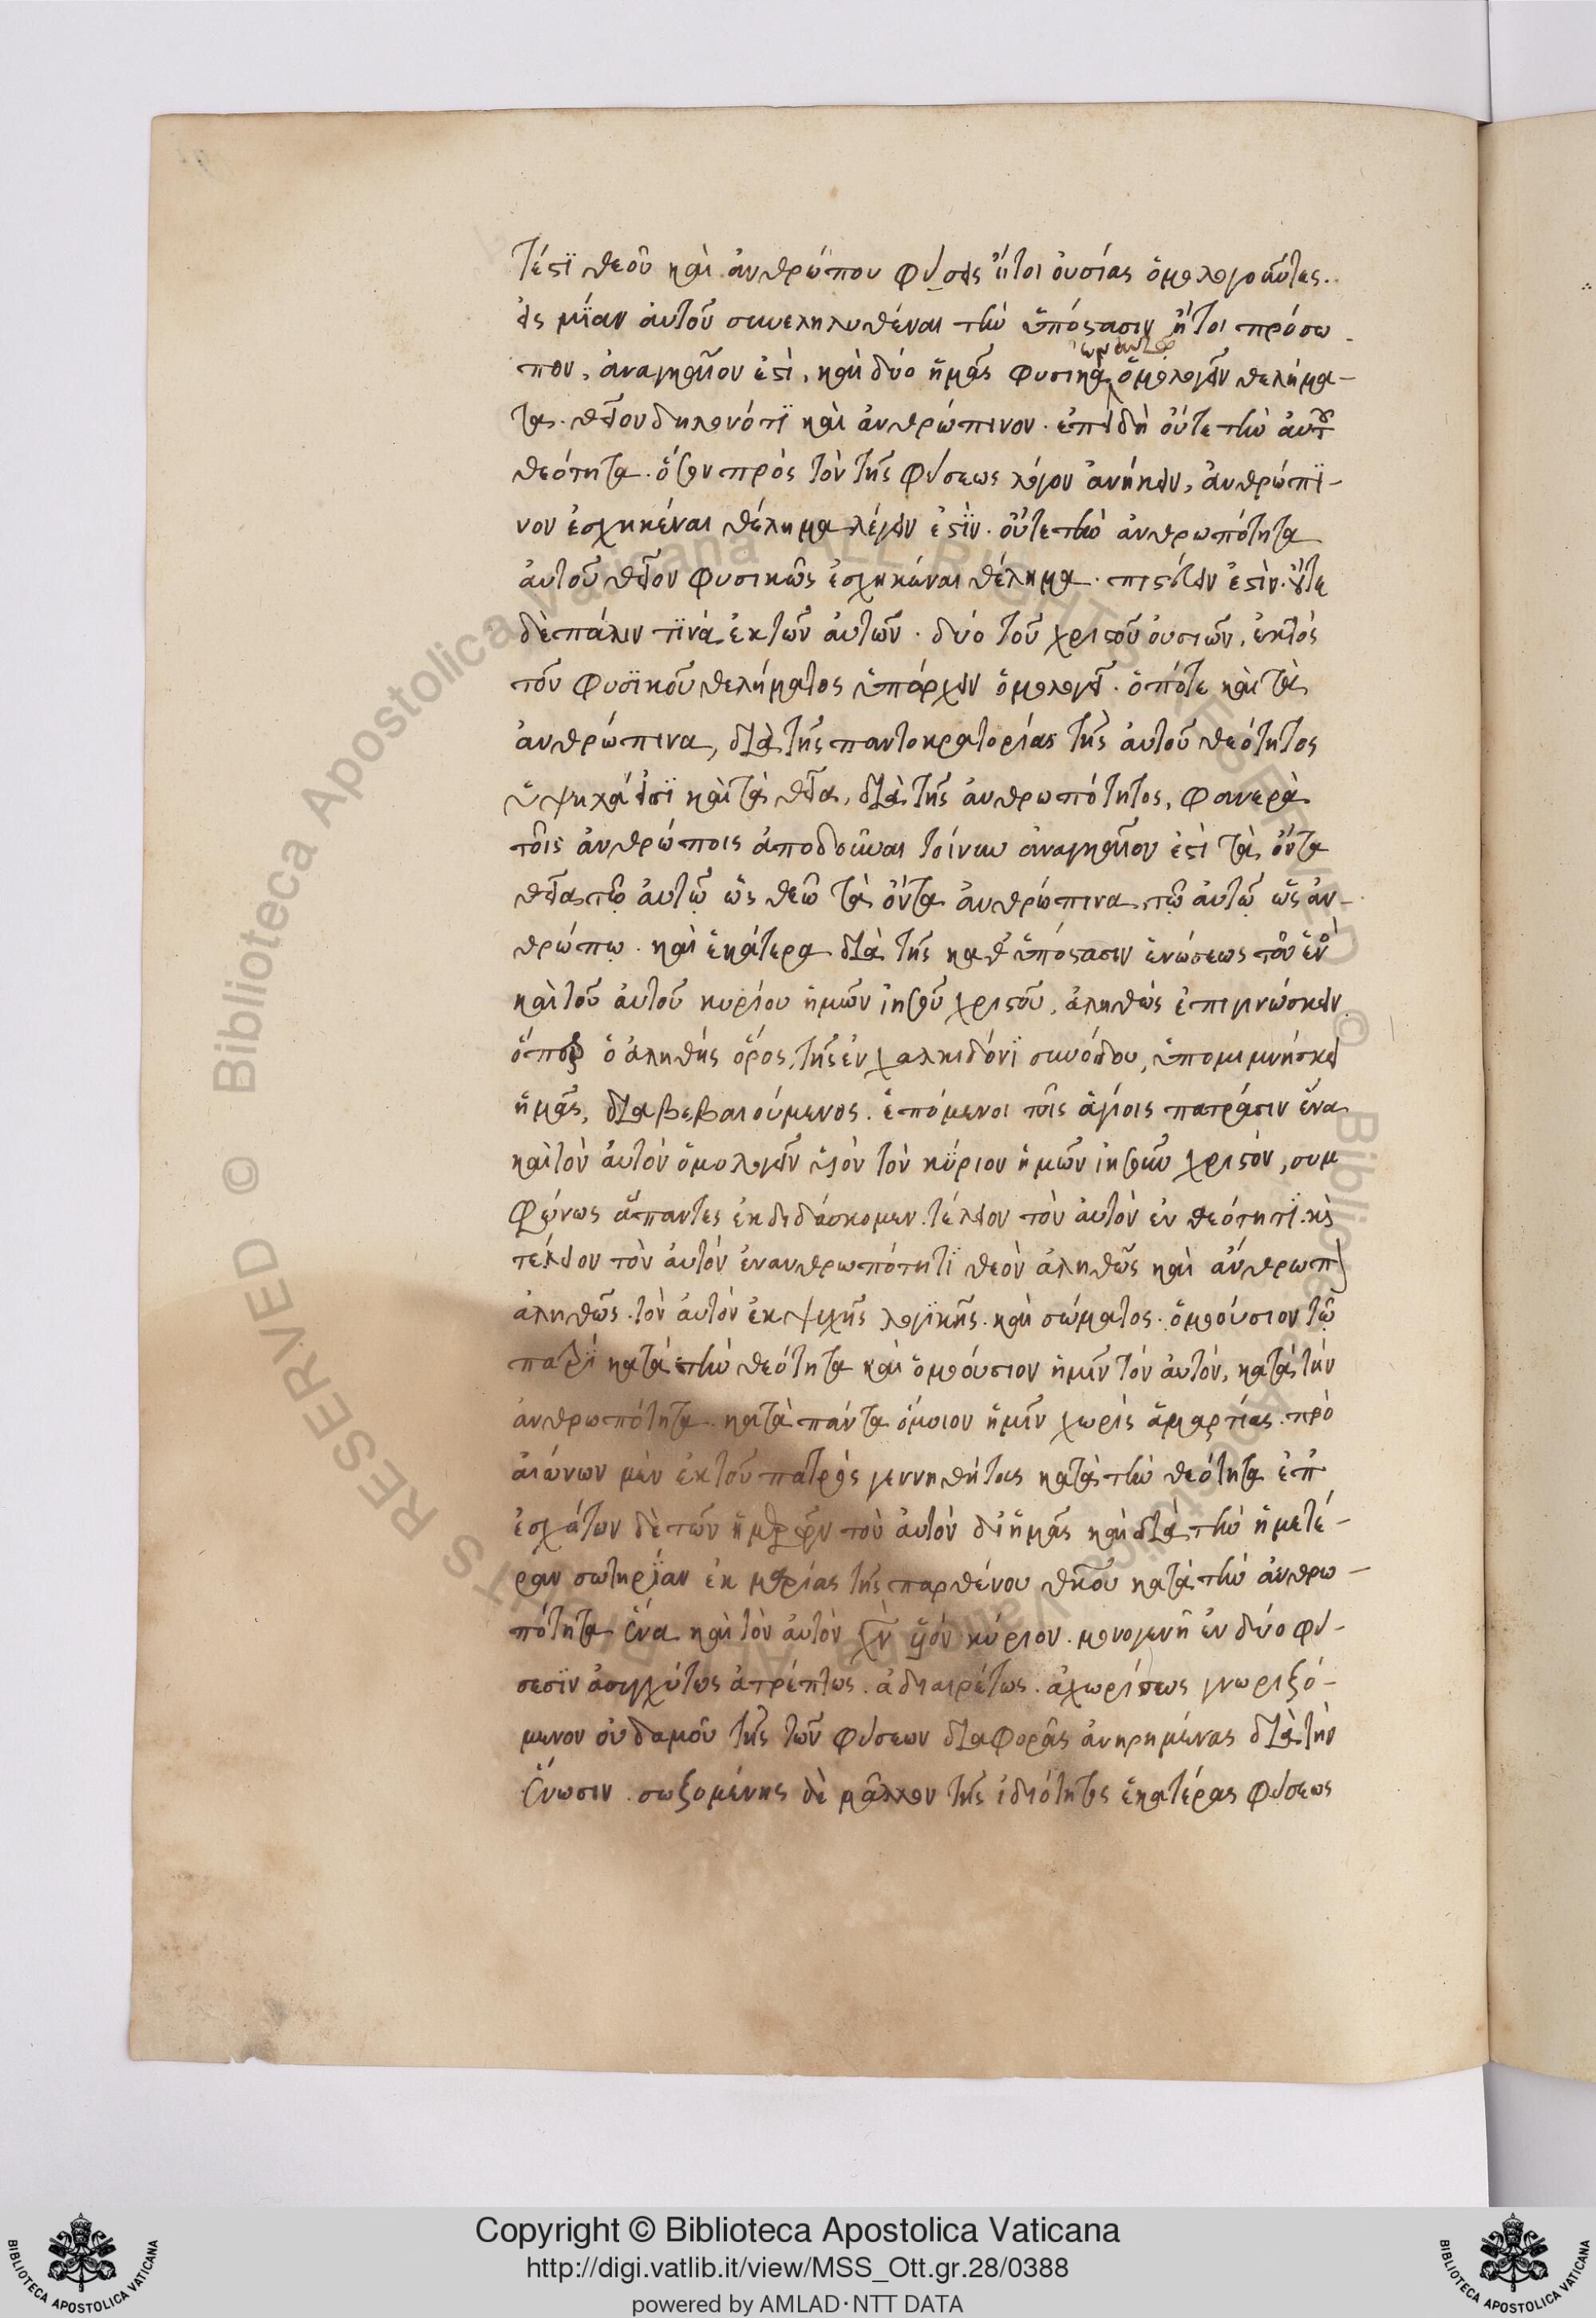 τέστι θεοῦ καὶ ἀνθρώπου φύσεις ἤτοι οὐσίας ὁμολογοῦντες..
εἰς μίαν αὐτοῦ συνεληλυθέναι τὴν ὑπόστασιν ἤτοι πρόσω
πον, ἀναγκαῖον ἐστὶ, καὶ δύο ἡμᾶς φυσικὰ ὁμολογεῖν θελήμα-
τα. θεῖον δηλονότι καὶ ἀνθρώπινον. ἐπειδὴ οὔτε τὴν αὐτοῦ
θεότητα. ὅσον πρὸς τὸν τῆς φύσεως λόγον ἀνήκειν, ἀνθρώπι-
νον ἐσχηκέναι θέλημα λέγειν ἐστὶν. οὔτε τὴν ἀνθρωπότητα
αὐτοῦ θεῖον φυσικῶς ἐσχηκέναι θέλημα. πιστεύειν ἐστὶν. οὔτε
δὲ πάλιν τινὰ ἐκ τῶν αὐτῶν. δύο τοῦ χριστοῦ οὐσιῶν, ἐκτὸς
τοῦ φυσικοῦ θελήματος ὑπάρχειν ὁμολογεῖ. ὁπότε καὶ τὰ
ἀνθρώπινα, διὰ τῆς παντοκρατορίας τῆς αὐτοῦ θεότητος
καὶ τὰ θεῖα, διὰ τῆς ἀνθρωπότητος, φανερὰ
τοῖς ἀνθρώποις ἀποδοῦναι τοίνυν ἀναγκαῖον ἐστὶ τὰ ὄντα
θεῖα τῷ αὐτῷ ὡς θεῷ τὰ ὄντα ἀνθρώπινα τῷ αὐτῷ ὡς ἀν-
θρώπῳ. καὶ ἑκάτερα διὰ τῆς καθ' ὑπόστασιν ἑνώσεως τοῦ ἑνὸς
καὶ τοῦ αὐτοῦ κυρίου ἡμῶν ἰησοῦ χριστοῦ, ἀληθῶς ἐπιγινώσκειν.
ὅπερ ὁ ἀληθὴς ὅρος, τῆς ἐν χαλκιδόνι συνόδου, ὑπομιμνήσκει
ἡμᾶς, διαβεβαιούμενος. ἑπόμενοι τοῖς ἁγίοις πατράσιν ἕνα
καὶ τὸν αὐτὸν ὁμολογεῖν υἱὸν τὸν κύριον ἡμῶν ἰησοῦν χριστὸν, συμ
φώνως ἅπαντες ἐκδιδάσκομεν. τέλειον τὸν αὐτὸν ἐν θεότητι. κὶ
τέλειον τὸν αὐτὸν ἐν ἀνθρωπότητι θεὸν ἀληθῶς καὶ ἄνθρωπον
ἀληθῶς. τὸν αὐτὸν ἐκ ψυχῆς λογικῆς. καὶ σώματος. ὁμοούσιον τῷ
πατρὶ κατὰ τὴν θεότητα καὶ ὁμοούσιον ἡμῖν τὸν αὐτὸν, κατὰ τὴν
ἀνθρωπότητα. κατὰ πάντα ὅμοιον ἡμῖν χωρὶς ἁμαρτίας. πρὸ
αἰώνων μὲν ἐκ τοῦ πατρὸς γεννηθέντος κατὰ τὴν θεότητα ἐπ'
ἐσχάτων δὲ τῶν ἡμερῶν τὸν αὐτὸν δι' ἡμᾶς καὶ διὰ τὴν ἡμετέ-
ραν σωτηρίαν ἐκ μαρίας τῆς παρθένου θκου κατὰ τὴν ἀνθρω-
πότητα ἕνα καὶ τὸν αὐτὸν χν υἱὸν κύριον. μονογενῆ ἐν δύο φύ-
σεσιν ἀσυγχύτως ἀτρέπτως. ἀδιαιρέτως. ἀχωρίστως γνωριζό-
μενον οὐδαμοῦ τῆς τῶν φύσεων διαφορᾶς ἀνῃρημένας διὰ τὴν
ἕνωσιν. σωζομένης δὲ μᾶλλον τῆς ἰδιότητος ἑκατέρας φύσεως
Copyright © Biblioteca Apostolica Vaticana
http://digi.vatlib.it/view/MSS_Ott.gr.28/0388
powered by AMLAD·NTT DATA